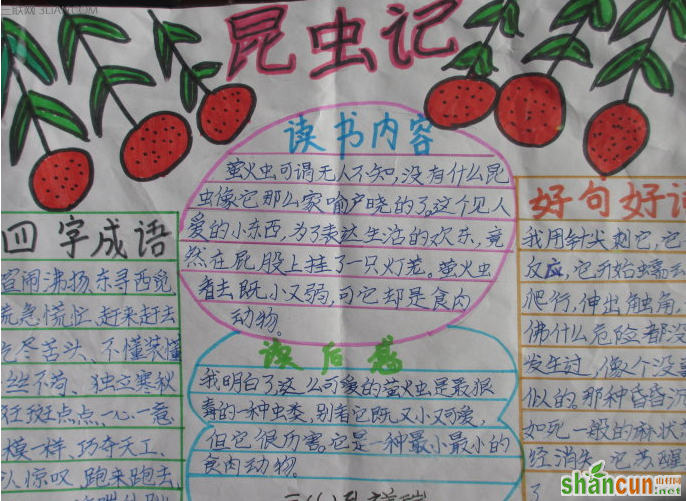 三联网 3LIAN.COM
昆虫记
读书内容
萤火虫可谓无人不知,没有什么昆
虫像它那么家喻户晓的了。这个见人
爱的小东西,为了表达生活的欢乐,竟
然在屁股上挂了一只灯笼。萤火虫
看去既小又弱,可它却是食肉
动物。
读后感
我明白了这么可爱的萤火虫是最狠
毒的一种虫类,别看它既又小又可爱,
但它很厉害。它是一种最小最小的
食肉动物。
四字成语
喧闹沸扬、东寻西觅
慌急慌忙、赶来赶去
吃尽苦头、不懂装懂
一丝不苟、独立寒秋
狂斑点点、一心一意
模一样、巧夺天工、
人惊叹、跑来跑去、
好句好词
我用针尖刺它,它
反应,它开始蠕动
爬行,伸出触角,
佛什么危险都没
发生过,像个没事
似的。那种昏昏沉
如死一般的麻状
经消失。它苏醒
了
shancun
山村网
.com